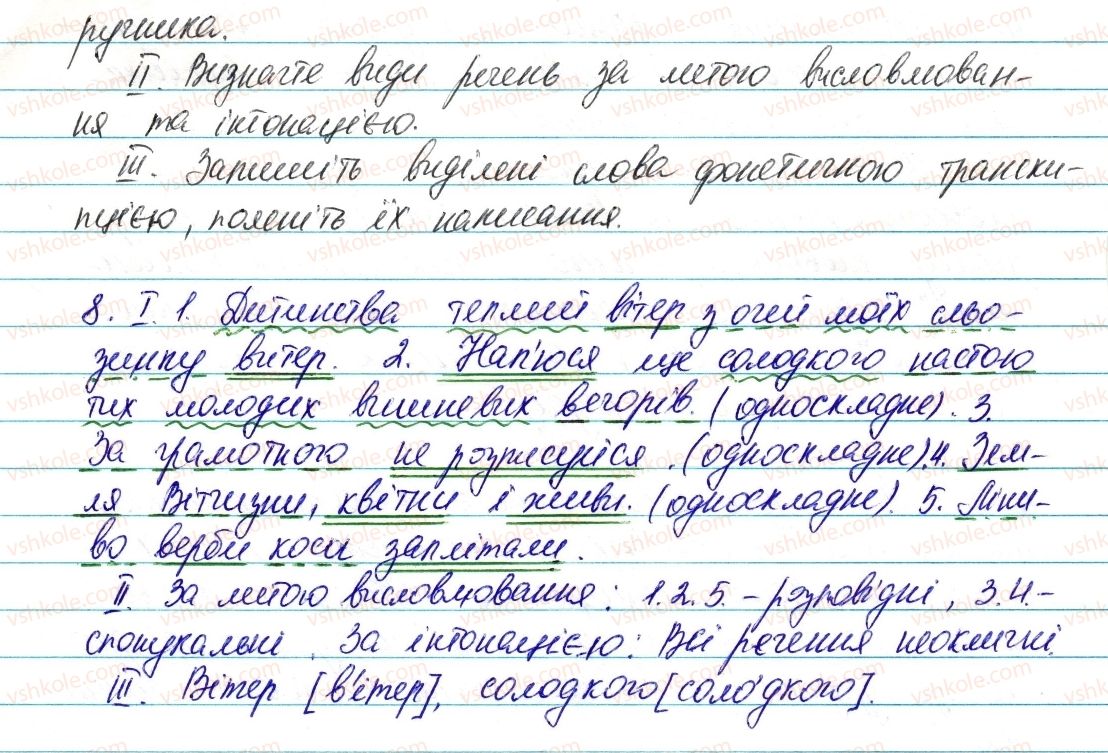 ручника.
II. Визначте види речень за метою висловлюван-
ня та інтонацією.
III. Запишіть виділені слова фонетичного транскри-
пцією, поясніть їх написання.
8. I. 1. Дитинства теплий вітер з очий моїх сльо-
зинку витер. 2. Нап'юся ще солодкого настою
тих молодих вишневих вечорів. (односкладне). 3.
За грамотного не розписуйся. (односкладне). 4. Зем-
ля Вітчизни, квітни і живи. (односкладне). 5. Ліни-
во верби коси заплітали.
II. За метою висловлювання: 1.2.5. - розповідні, 3.4.-
спонукальні. За інтонацією: Всі речення неокличні.
III. Вітер [в'ітер], солодкого [соло́дкого].